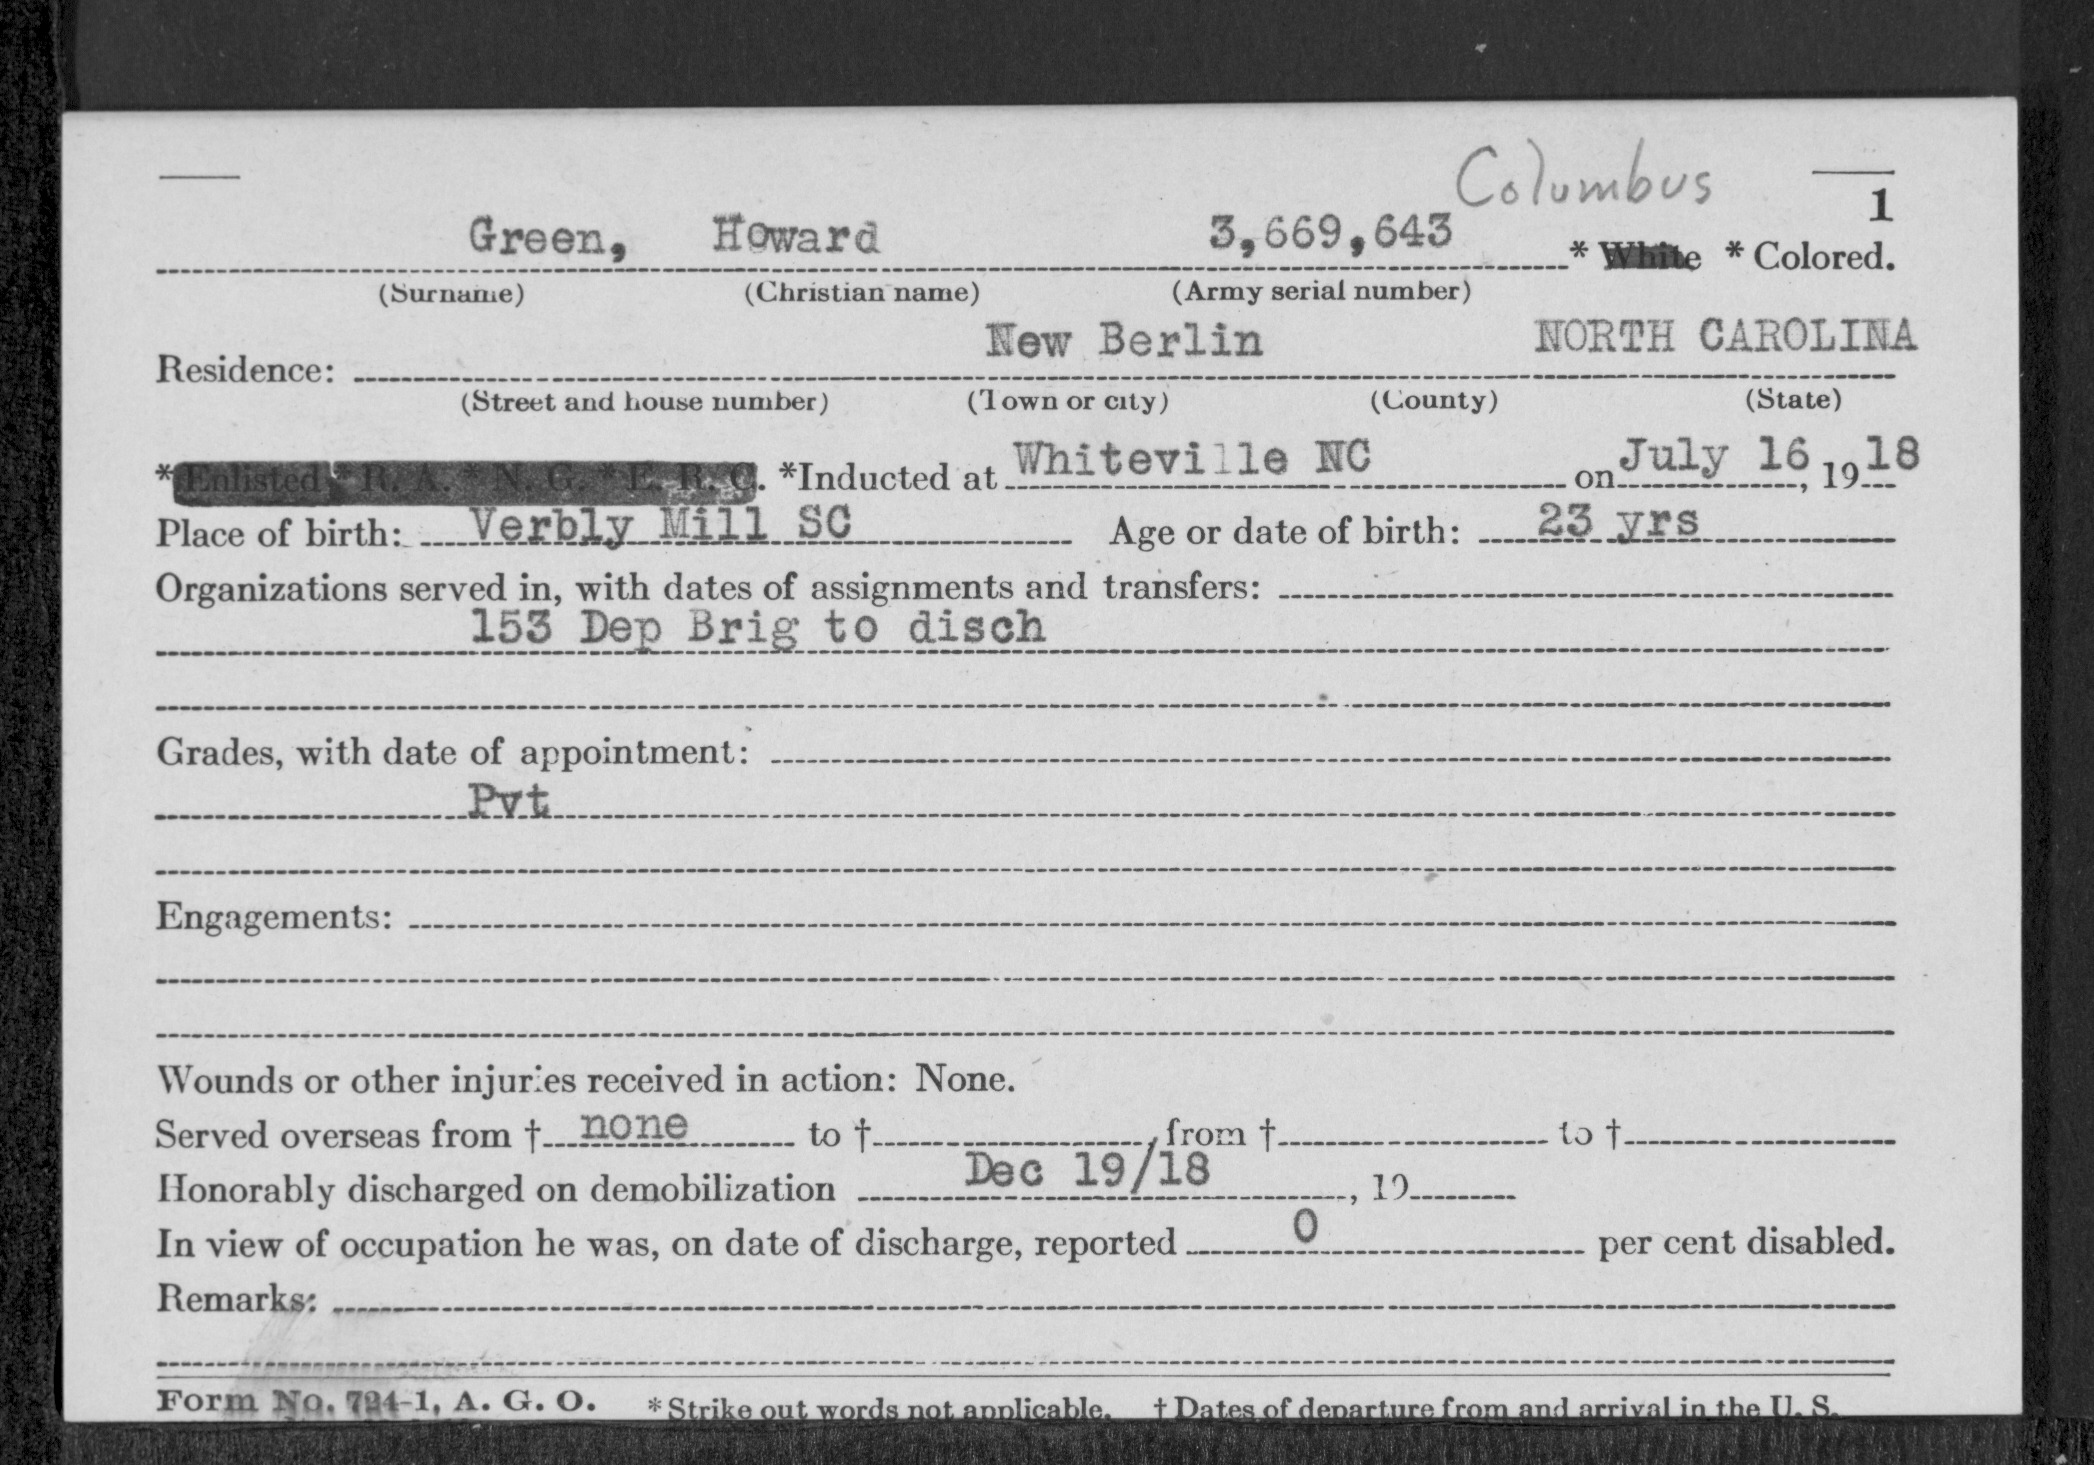 Columbus
1
Green, Howard 3,669,643 * White * Colored.
(Surname) (Christian name) (Army serial number)
New Berlin NORTH CAROLINA
Residence:
(Street and house number) (Town or city) (County) (State)
*Enlisted *R. A. *N. G. *E. R. C. *Inducted at Whiteville NC on July 16, 1918
Place of birth: Verbly Mill SC Age or date of birth: 23 yrs
Organizations served in, with dates of assignments and transfers:
153 Dep Brig to disch
Grades, with date of appointment:
Pvt
Engagements:
Wounds or other injuries received in action: None.
Served overseas from † none to †, from † to †
Honorably discharged on demobilization Dec 19/18, 19
In view of occupation he was, on date of discharge, reported 0 per cent disabled.
Remarks:
Form No. 724-1, A. G. O. *Strike out words not applicable. †Dates of departure from and arrival in the U. S.